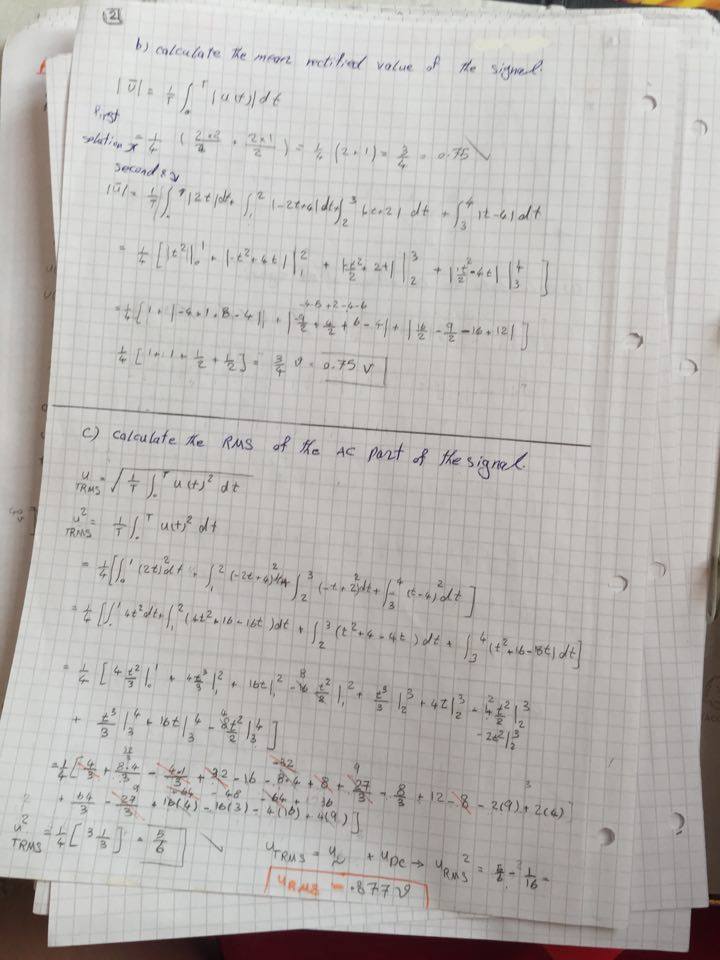 2
b) calculate the mean rectified value of the signal.
|ū| = 1/T ∫₀ᵀ |u(t)| dt
first
solution = 1/4 ( 2×2/2 + 2×1/2 ) = 1/4 (2+1) = 3/4 = 0.75 ✓
second
|ū| = 1/T ∫₀¹ |2t| dt + ∫₁² |-2t+4| dt + ∫₂³ |-t+2| dt + ∫₃⁴ |t-4| dt
= 1/4 [ |t²||₀¹ + |-t²+4t||₁² + |-t²/2+2t||₂³ + |t²/2-4t||₃⁴ ]
= 1/4 [ 1 + |-4+1+8-4| + |-9/2+4/2+6-4| + |16/2-9/2-16+12| ]
1/4 [ 1+1+1/2+1/2 ] = 3/4 v = 0.75 v
c) calculate the RMS of the AC part of the signal.
u TRMS = √(1/T ∫₀ᵀ u(t)² dt)
u² TRMS = 1/T ∫₀ᵀ u(t)² dt
= 1/4 [ ∫₀¹ (2t)² dt + ∫₁² (-2t+4)² dt + ∫₂³ (-t+2)² dt + ∫₃⁴ (t-4)² dt ]
= 1/4 [ ∫₀¹ 4t² dt + ∫₁² (4t²+16-16t) dt + ∫₂³ (t²+4-4t) dt + ∫₃⁴ (t²+16-18t) dt ]
= 1/4 [ 4 t²/3|₀¹ + 4t³/3|₁² + 16t|₁² - 16 t²/2|₁² + t³/3|₂³ + 4t|₂³ - 4t²/2|₂³
- 2t²|₂³
+ t³/3|₃⁴ + 16t|₃⁴ - 8t²/2|₃⁴ ]
= 1/4 [ 4/3 + 8·4/3 - 4·1/3 + 32 - 16 - 8·4 + 8 + 27/3 - 8/3 + 12 - 8 - 2(9) + 2(4)
+ 64/3 - 27/3 + 16(4) - 16(3) - 4(16) + 4(9) ]
u² TRMS = 1/4 [ 3 1/3 ] = 5/6 ✓
u TRMS = u + u DC → u RMS² = 5/6 - 1/16 =
u RMS = .877 v